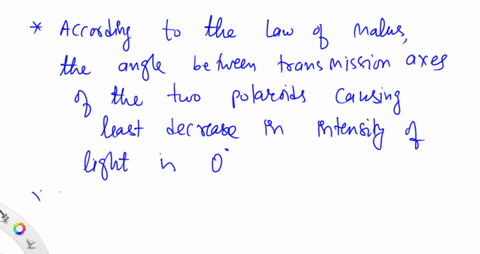 * According to the Law of Malus,
the angle between transmission axes
of the two polaroids causing
least decrease in intensity of
light is 0°